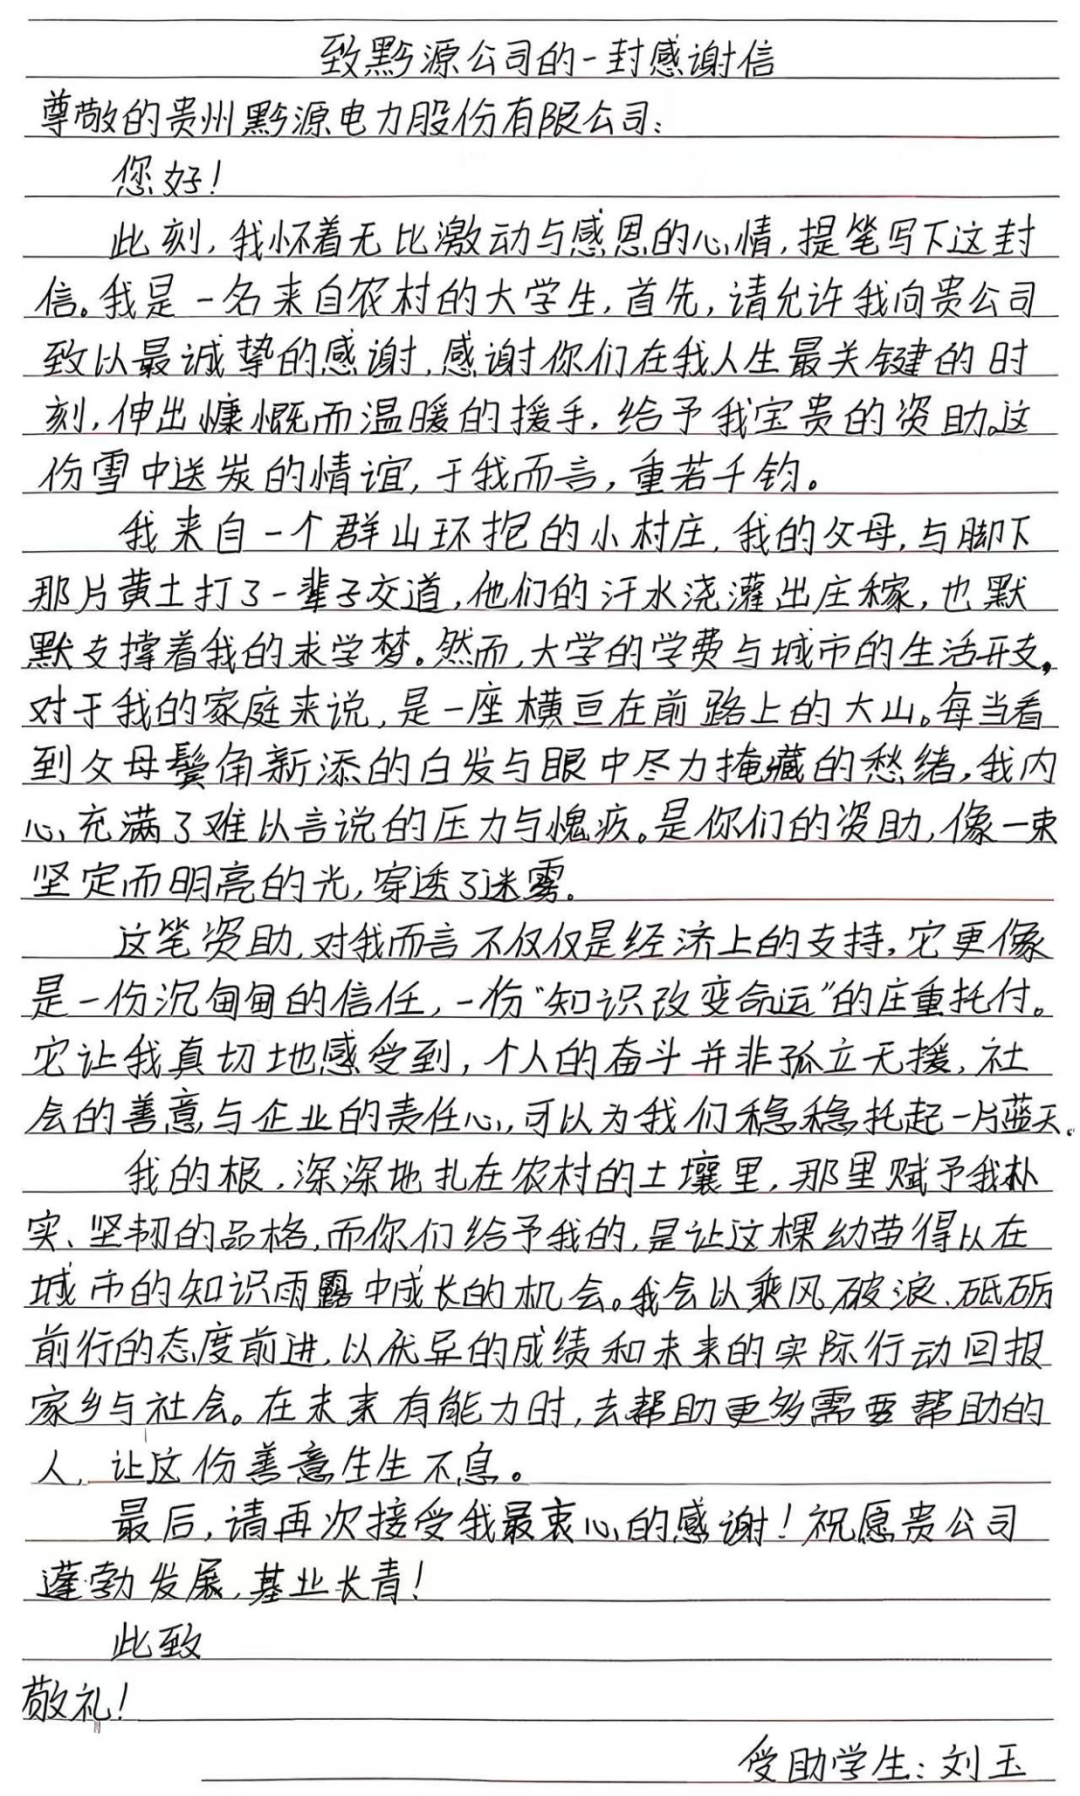 致黔源公司的一封感谢信
尊敬的贵州黔源电力股份有限公司:
您好!
此刻,我怀着无比激动与感恩的心情,提笔写下这封
信。我是一名来自农村的大学生,首先,请允许我向贵公司
致以最诚挚的感谢,感谢你们在我人生最关键的时
刻,伸出慷慨而温暖的援手,给予我宝贵的资助。这
份雪中送炭的情谊,于我而言,重若千钧。
我来自一个群山环抱的小村庄,我的父母,与脚下
那片黄土打了一辈子交道,他们的汗水浇灌出庄稼,也默
默支撑着我的求学梦。然而,大学的学费与城市的生活开支,
对于我的家庭来说,是一座横亘在前路上的大山。每当看
到父母鬓角新添的白发与眼中尽力掩藏的愁绪,我内
心充满了难以言说的压力与愧疚。是你们的资助,像一束
坚定而明亮的光,穿透了迷雾。
这笔资助,对我而言不仅仅是经济上的支持,它更像
是一份沉甸甸的信任,一份“知识改变命运”的庄重托付。
它让我真切地感受到,个人的奋斗并非孤立无援,社
会的善意与企业的责任心,可以为我们稳稳托起一片蓝天。
我的根,深深地扎在农村的土壤里,那里赋予我朴
实、坚韧的品格,而你们给予我的,是让这棵幼苗得以在
城市的知识雨露中成长的机会。我会以乘风破浪、砥砺
前行的态度前进,以优异的成绩和未来的实际行动回报
家乡与社会。在未来有能力时,去帮助更多需要帮助的
人,让这份善意生生不息。
最后,请再次接受我最衷心的感谢!祝愿贵公司
蓬勃发展,基业长青!
此致
敬礼!
受助学生:刘玉